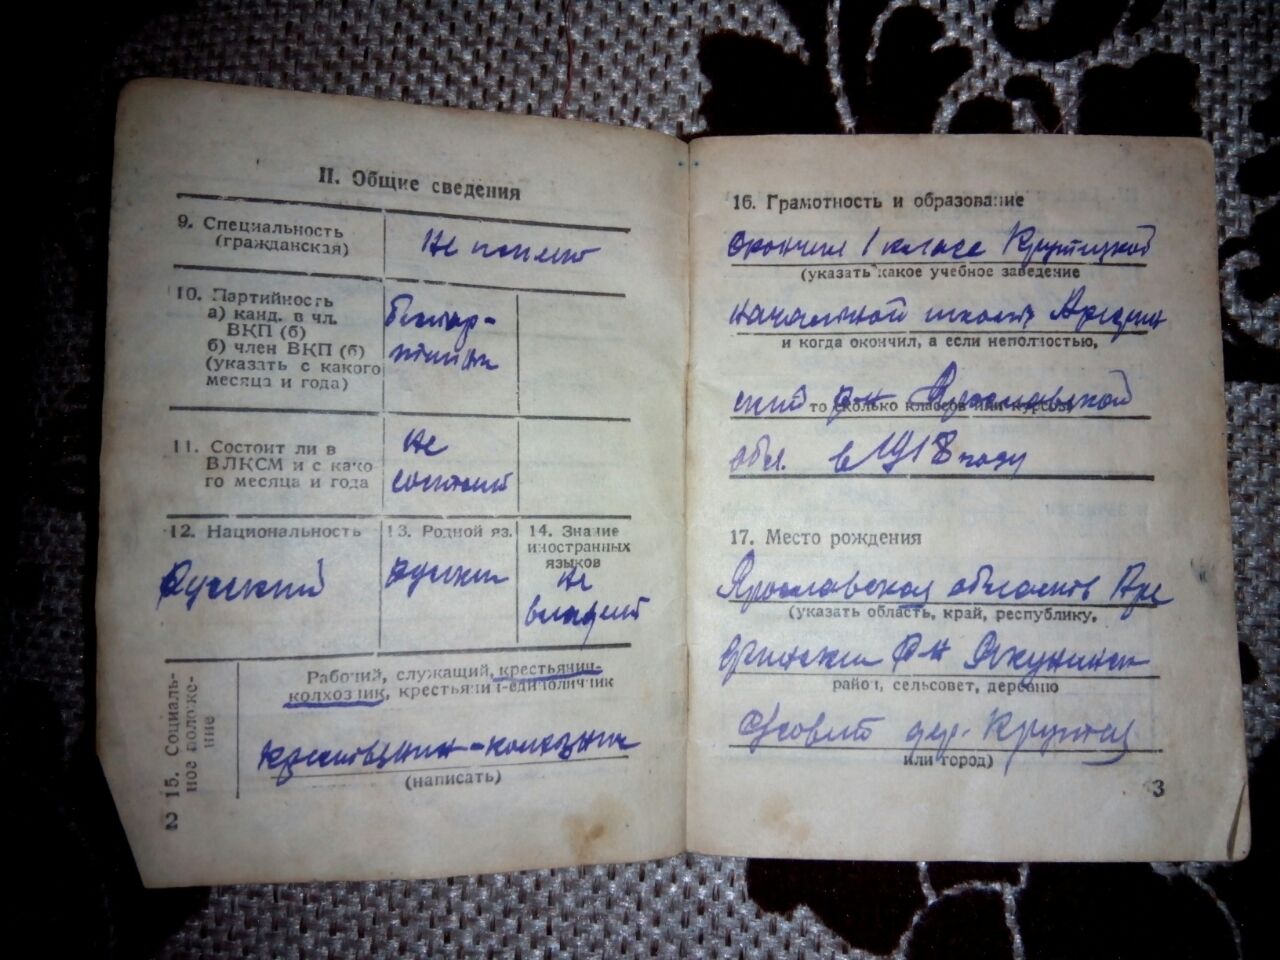 II. Общие сведения
9. Специальность
(гражданская)
Не имеет
10. Партийность
а) канд. в чл.
ВКП (б)
б) член ВКП (б)
(указать с какого
месяца и года)
Беспар-
тийный
11. Состоит ли в
ВЛКСМ и с како
го месяца и года
Не
состоит
12. Национальность
Русский
13. Родной яз.
Русский
14. Знание
иностранных
языков
Не
владеет
15. Социаль-
ное положе-
ние
Рабочий, служащий, крестьянин-
колхозник, крестьянин-единоличник
крестьянин-колхозник
(написать)
2
16. Грамотность и образование
Окончил 1 класс Крутецкой
(указать какое учебное заведение
начальной школы
и когда окончил, а если неполностью,
ский р-н Ярославской
то сколько классов или курсов)
обл. в 1918 году
17. Место рождения
Ярославская область
(указать область, край, республику,
р-н
район, сельсовет, деревню
С/совет дер. Крутец
или город)
3